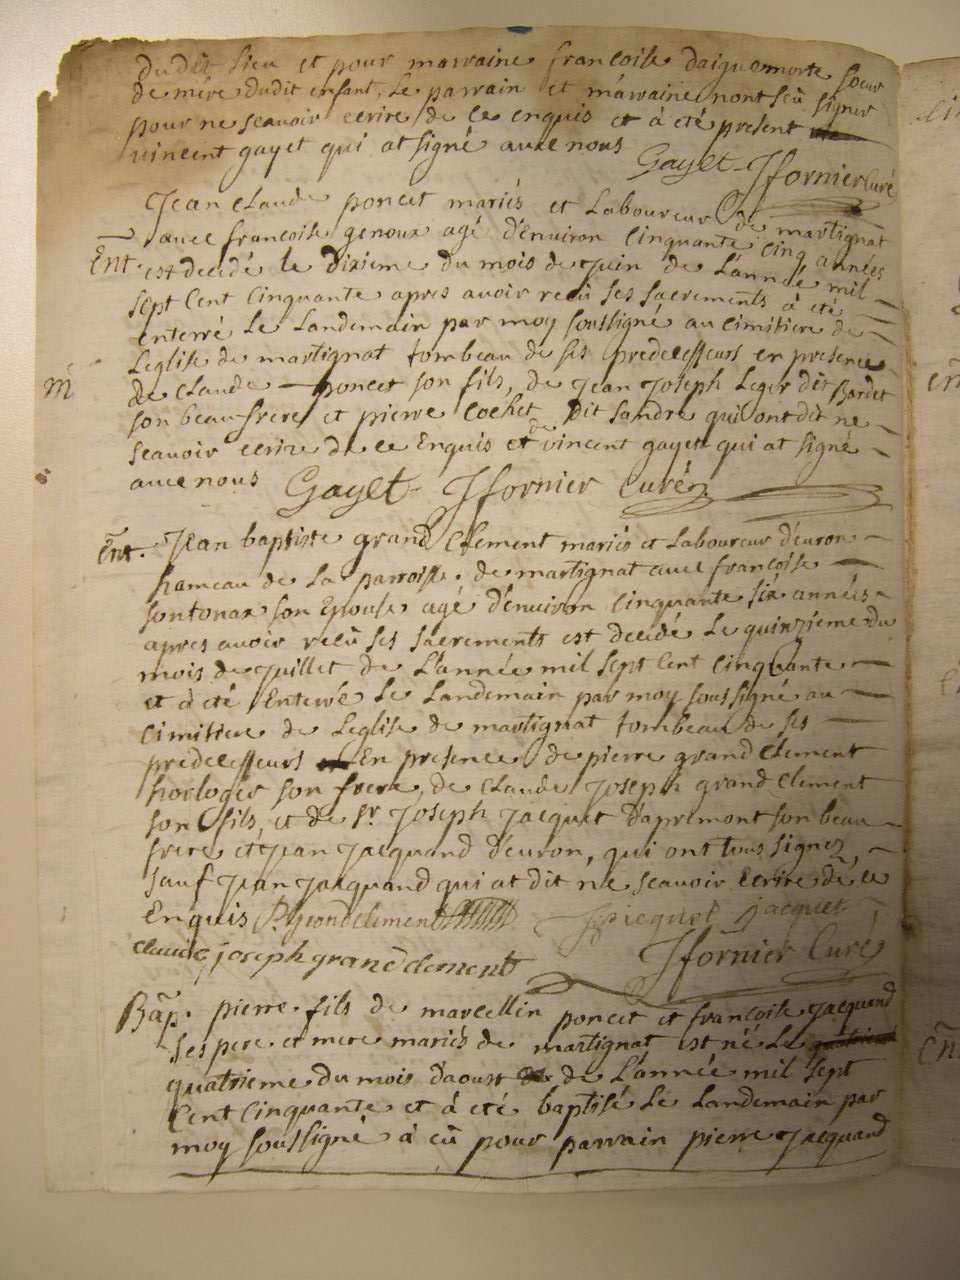 dudit lieu et pour marraine francoise daiguemorte soeur
de mére dudit enfant, Le parrain et márraine nont seu signer
pour ne scavoir ecrire de ce enquis et à eté present
vincent gayet qui at signé avec nous
Gayet Jfornier Curé
Jean Claude poncet mariés et Laboureur de martignat
Ent. avec francoise genoux agé d'environ cinquante cinq années
est decedé le dixieme du mois de Juin de L'année mil
sept cent cinquante apres avoir recû ses sacrements à eté
enterré Le Landemain par moy soussigné au cimitiere de
Leglise de martignat tombeau de ses predecesseurs en presence
m
de Claude poncet son fils, de Jean Joseph Leger dit Bardet
son beaufrere et pierre Cochet dit Landre qui ont dit ne
scavoir ecrire de ce Enquis et de vincent gayet qui at signé
avec nous Gayet Jfornier Curé
Ent. Jean baptiste grand Clement mariés et Laboureur d'euron
hameau de La parroisse de martignat avec francoise
sontonax son Epouse agé d'environ cinquante six années
apres avoir recû ses sacrements est decedé Le quinzieme du
mois de Juillet de L'année mil sept cent cinquante
et à eté Enterré Le Landemain par moy soussigné au
Cimitiere de Leglise de martignat tombeau de ses
predecesseurs En presence de pierre grand Clement
horloger son frere, de Claude Joseph grand Clement
son fils, et de Sr. Joseph Jacquet d'apremont son beau
frere et Jean Jacquand d'euron, qui ont tous signez
sauf Jean Jacquand qui at dit ne scavoir Ecrire de ce
Enquis P. grandclement Jacquet
claude joseph grand clement Jfornier Curé
Bap. pierre fils de marcellin poncet et francoise Jacquand
ses pere et mere mariés de martignat est né Le
quatrieme du mois d'aoust de L'année mil sept
Cent cinquante et à eté baptisé Le Landemain par
moy soussigné à eû pour parrain pierre Jacquand